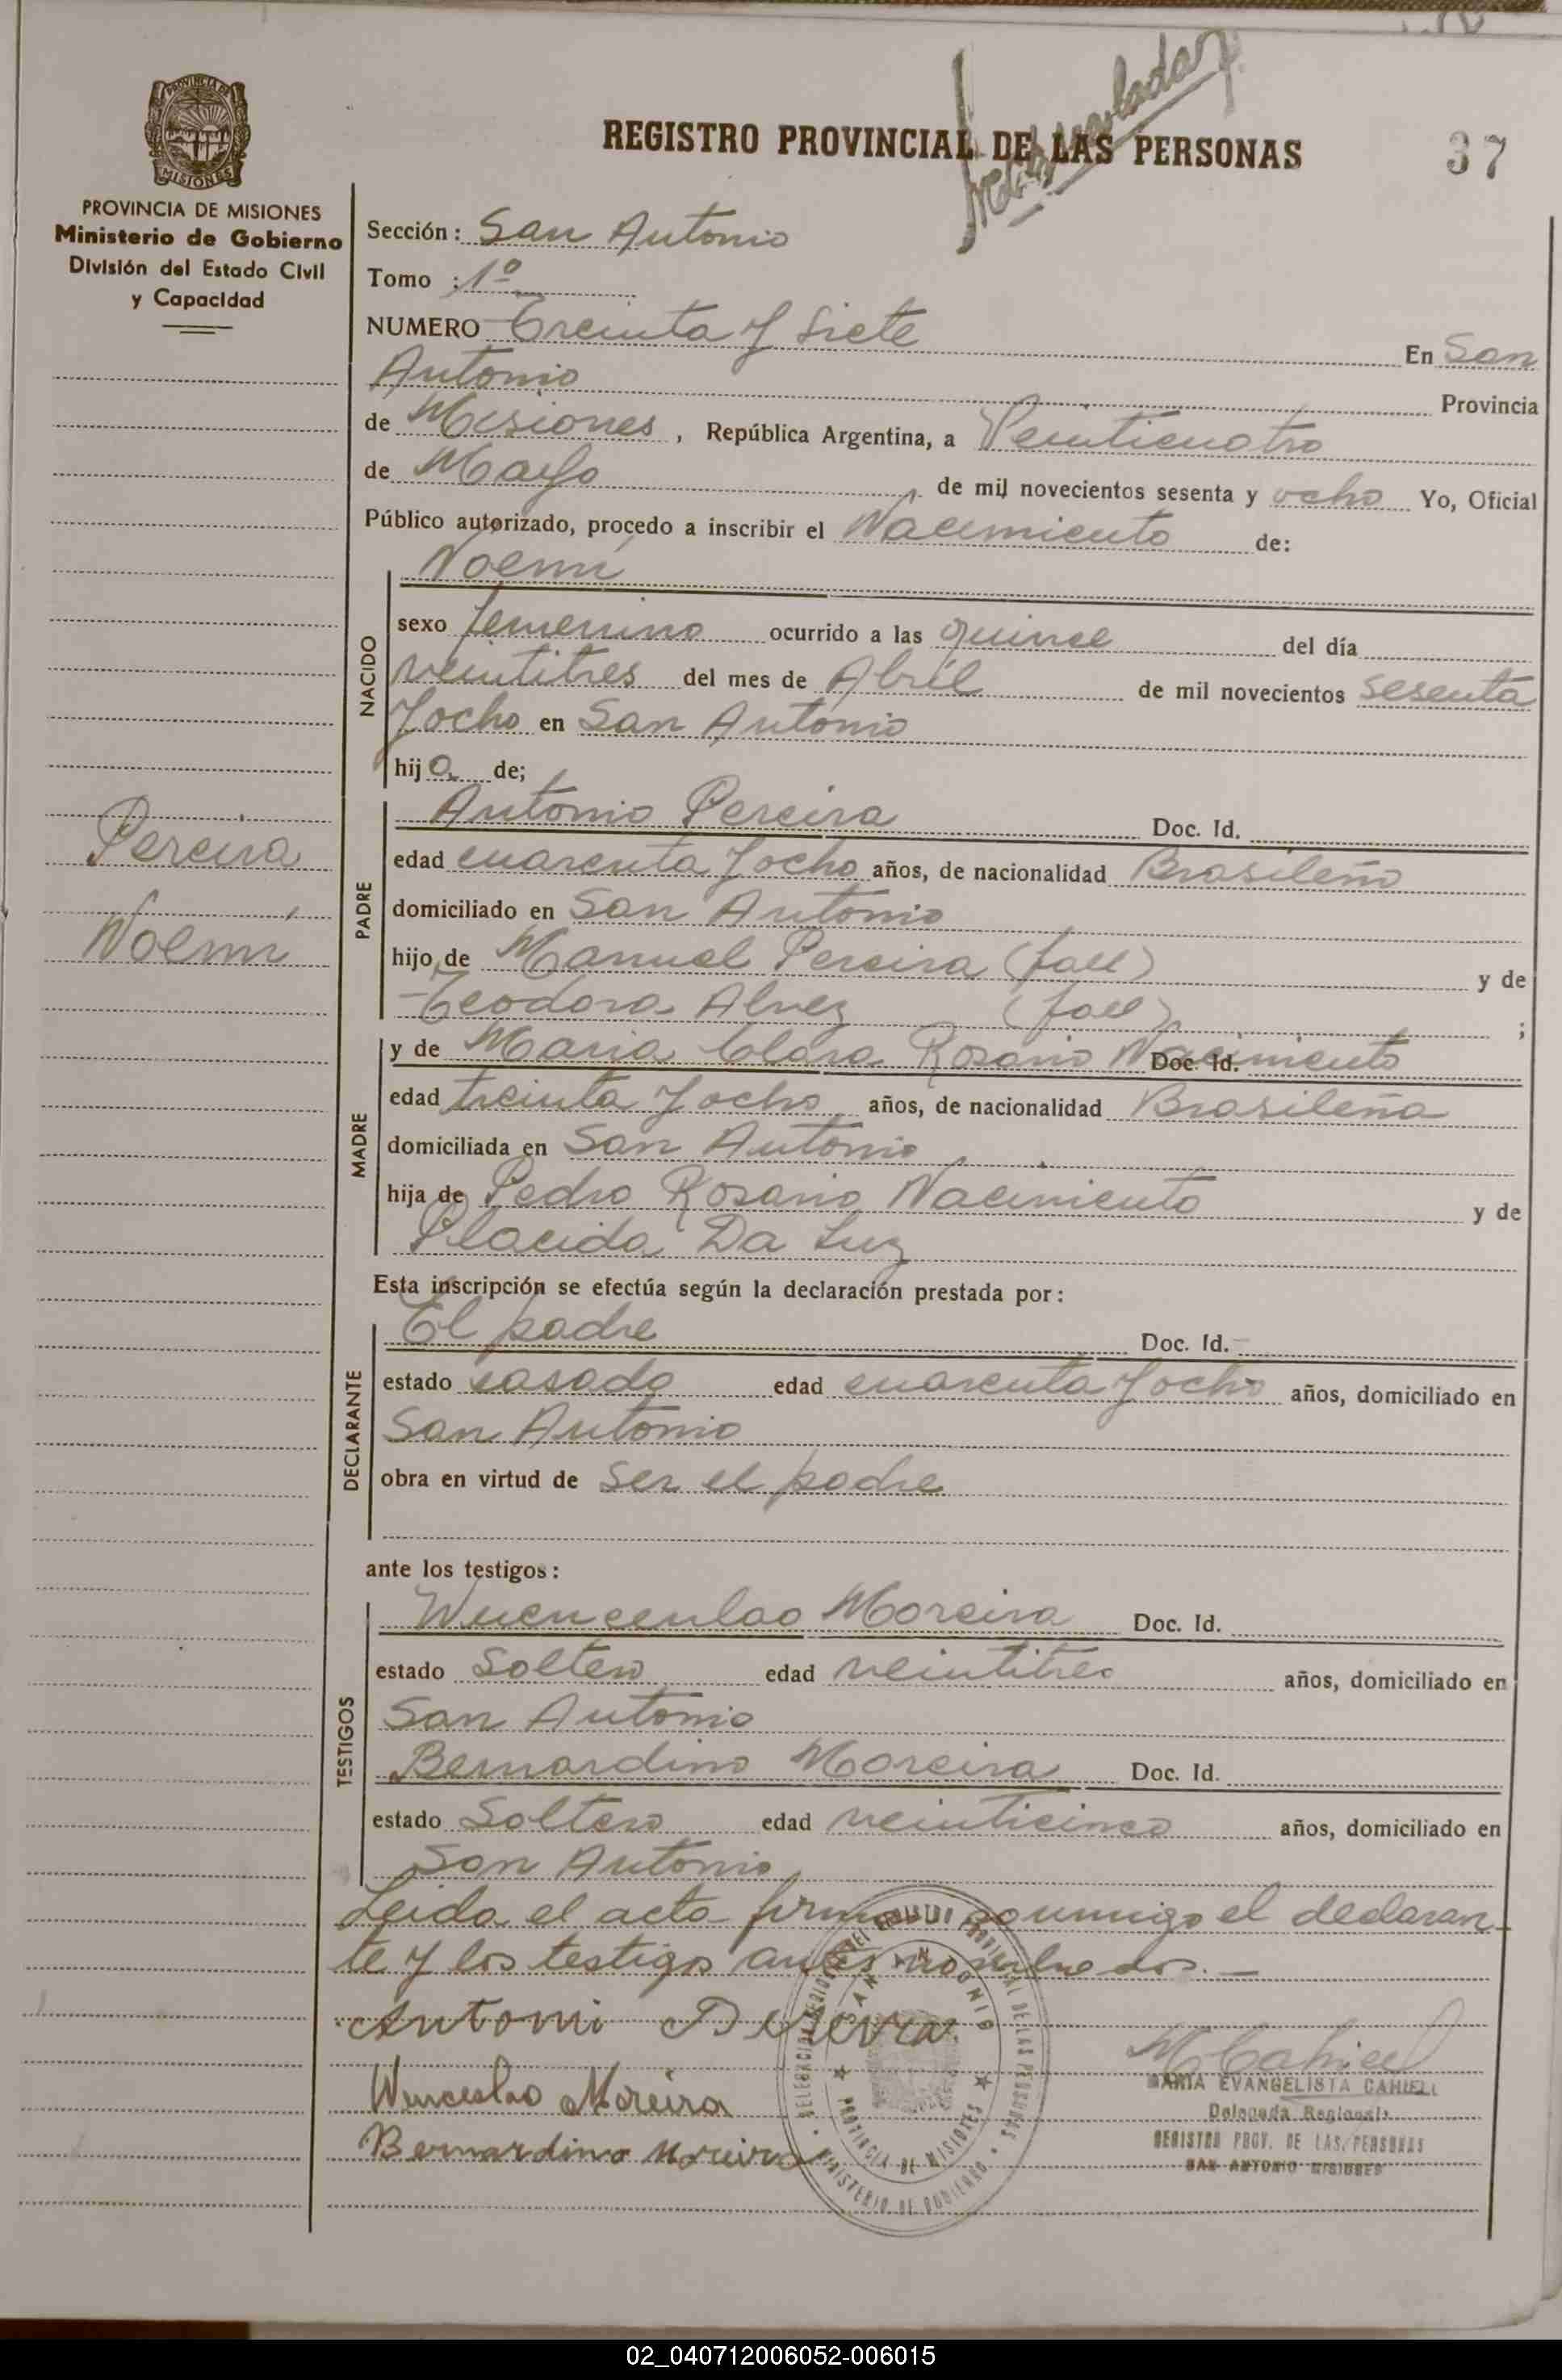 REGISTRO PROVINCIAL DE LAS PERSONAS
37
PROVINCIA DE MISIONES
Ministerio de Gobierno
División del Estado Civil
y Capacidad
Sección: San Antonio
Tomo : 1º
NUMERO Treinta y Siete En San
Antonio Provincia
de Misiones, República Argentina, a Veinticuatro
de Mayo de mil novecientos sesenta y ocho Yo, Oficial
Público autorizado, procedo a inscribir el Nacimiento de:
NACIDO
Noemí
sexo femenino ocurrido a las quince del día
veintitres del mes de Abril de mil novecientos sesenta
y ocho en San Antonio
hija de;
Pereira
Noemí
PADRE
Antonio Pereira Doc. Id.
edad cuarenta y ocho años, de nacionalidad Brasileño
domiciliado en San Antonio
hijo de Manuel Pereira (fall) y de
Teodora Alvez (fall) ;
MADRE
y de Maria Clara Rosario Nacimiento Doc. Id.
edad treinta y ocho años, de nacionalidad Brasileña
domiciliada en San Antonio
hija de Pedro Rosario Nacimiento y de
Placida Da Luz
Esta inscripción se efectúa según la declaración prestada por:
DECLARANTE
El padre Doc. Id.
estado casado edad cuarenta y ocho años, domiciliado en
San Antonio
obra en virtud de ser el padre
ante los testigos:
TESTIGOS
Wuencenlao Moreira Doc. Id.
estado Soltero edad veintitres años, domiciliado en
San Antonio
Bernardino Moreira Doc. Id.
estado Soltero edad veinticinco años, domiciliado en
San Antonio
Leida el acta firman conmigo el declaran-
te y los testigos antes nombrados.—
Antoni Pereira
Wenceslao Moreira
Bernardino Moreira
MARIA EVANGELISTA CAHIELL
Delegada Regional
REGISTRO PROV. DE LAS PERSONAS
SAN ANTONIO MISIONES
SAN ANTONIO
PROVINCIA DE MISIONES
MINISTERIO DE GOBIERNO
02_040712006052-006015